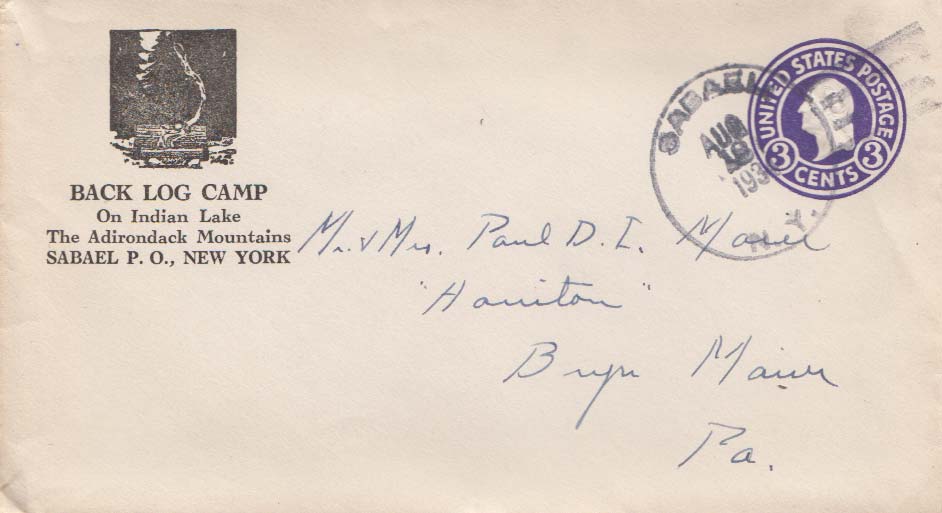 BACK LOG CAMP
On Indian Lake
The Adirondack Mountains
SABAEL P. O., NEW YORK
SABAEL
AUG
193
N.Y.
UNITED STATES POSTAGE
3 CENTS 3
Mr. & Mrs. Paul D. I. Maier
"Honiton"
Bryn Mawr
Pa.